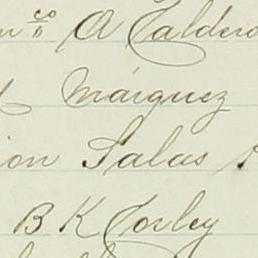 A Caldero
Márquez
ion Salas
B K Corley